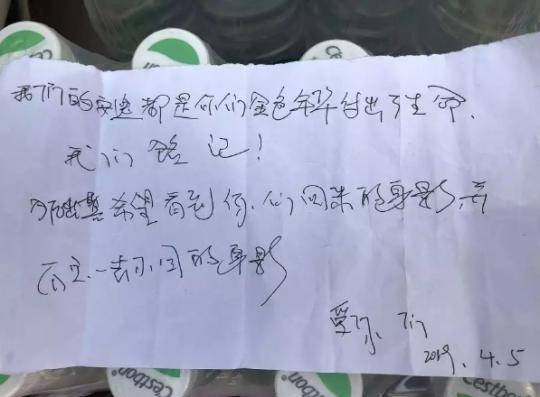 我们的安逸都是你们金色年华付出了生命.
我们铭记!
希望看到你们回来的身影,而
不是一去不回的身影
爱你们
2019.4.5
Cestbon
Cestbon
Cestbon